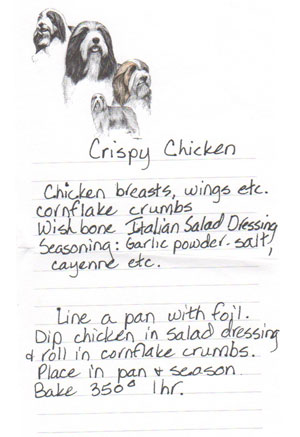 Crispy Chicken
Chicken breasts, wings etc.
cornflake crumbs
Wishbone Italian Salad Dressing
Seasoning: Garlic powder-salt,
cayenne etc.
Line a pan with foil.
Dip chicken in salad dressing
& roll in cornflake crumbs.
Place in pan & season.
Bake 350° 1hr.